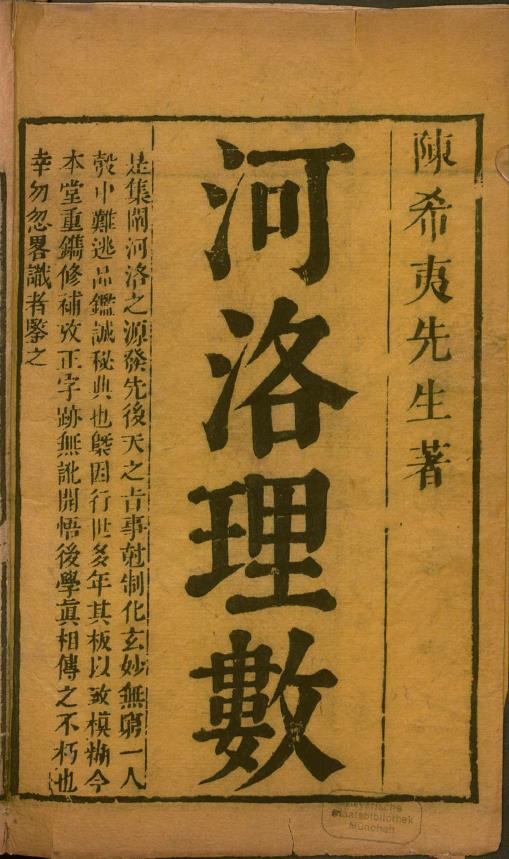 陳希夷先生著
河洛理數
是集闡河洛之源發先後天之古事尅制化玄妙無窮一人
彀中難逃品鑑誠秘典也槩因行世多年其板以致模糊今
本堂重鐫修補攷正字跡無訛開悟後學眞相傳之不朽也
幸勿忽畧識者鑒之
Bayerische
Staatsbibliothek
München